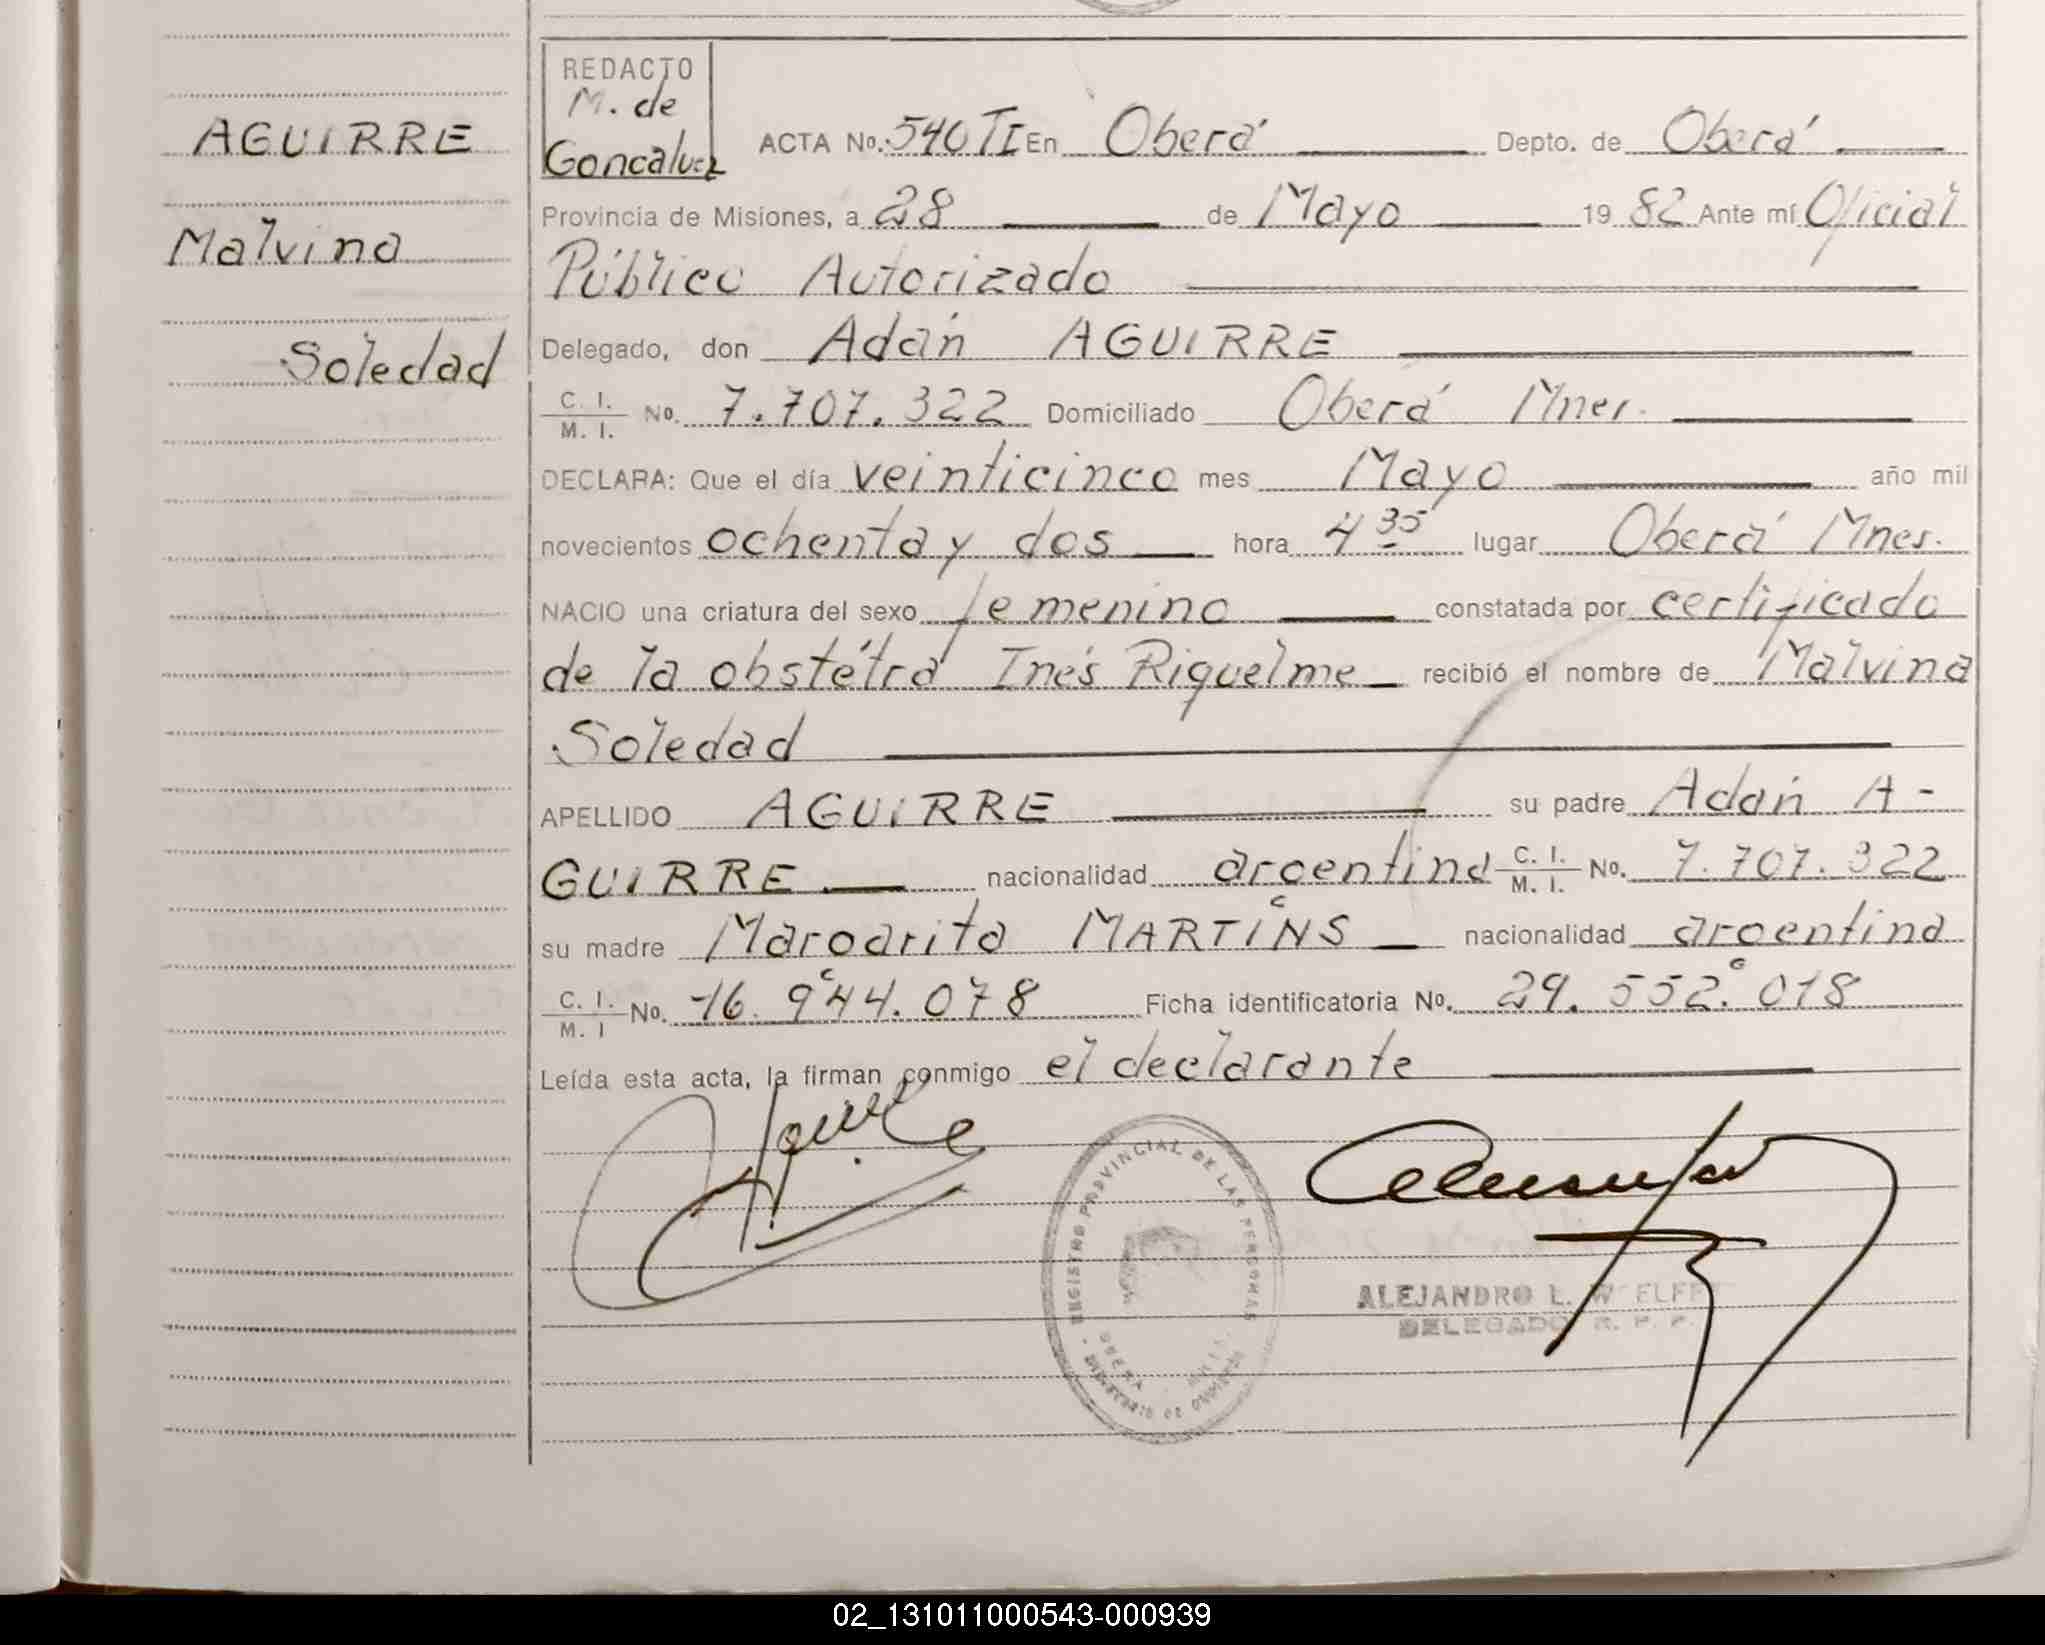 AGUIRRE
Malvina
Soledad
REDACTO
M. de
Goncalvez
ACTA No. 540 TI En Oberá Depto. de Oberá
Provincia de Misiones, a 28 de Mayo 19 82 Ante mí Oficial
Público Autorizado
Delegado, don Adán AGUIRRE
C. I.
M. I. No. 7.707.322 Domiciliado Oberá Mnes.
DECLARA: Que el día veinticinco mes Mayo año mil
novecientos ochenta y dos hora 4 35 lugar Oberá Mnes.
NACIO una criatura del sexo femenino constatada por certificado
de la obstétra Inés Riquelme recibió el nombre de Malvina
Soledad
APELLIDO AGUIRRE su padre Adán A-
GUIRRE nacionalidad argentina C. I. M. I. No. 7.707.322
su madre Margarita MARTINS nacionalidad argentina
C. I.
M. I No. 16.944.078 Ficha identificatoria No. 29.552.018
Leída esta acta, la firman conmigo el declarante
REGISTRO PROVINCIAL DE LAS PERSONAS
OBERA
MINISTERIO DE GOBIERNO
ALEJANDRO L.
DELEGADO R. P. P.
02_131011000543-000939